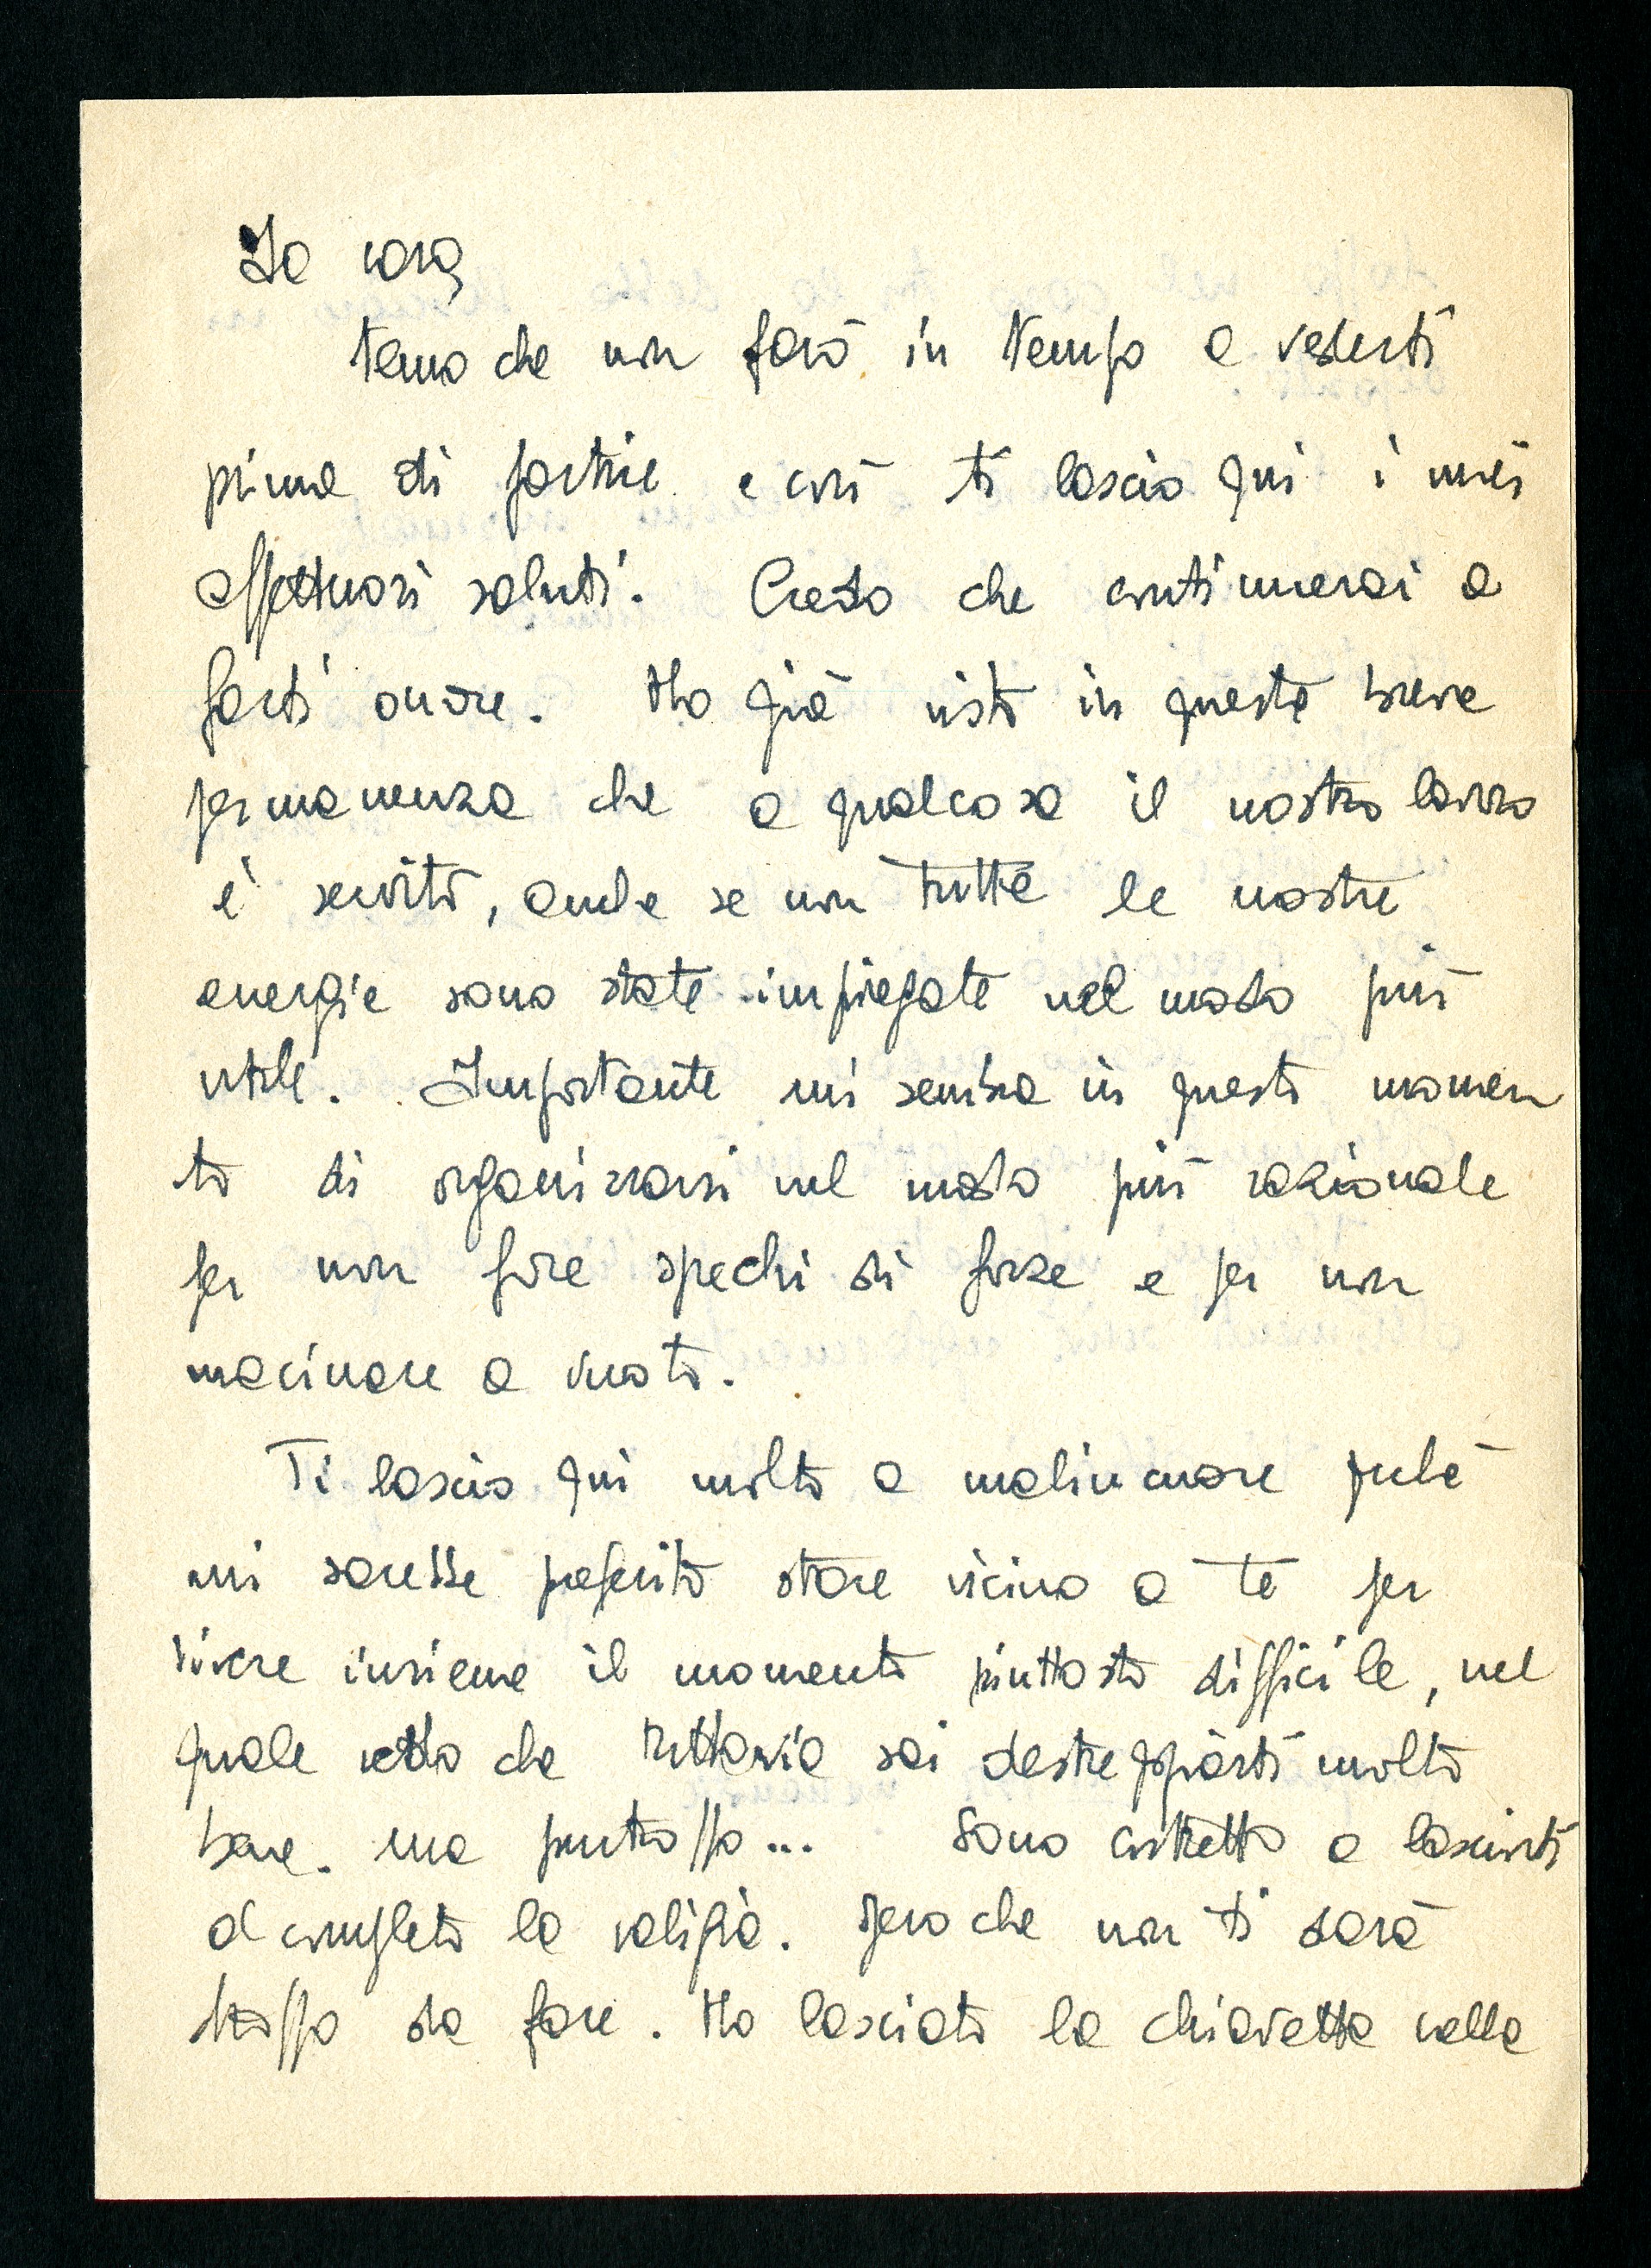 Io cara,
temo che non farò in tempo a vederti
prima di partire e così ti lascio qui i miei
affettuosi saluti. Credo che continuerai a
farti onore. Ho già visto in questa breve
permanenza che a qualcosa il nostro lavoro
è servito, anche se non tutte le nostre
energie sono state impiegate nel modo più
utile. Importante mi sembra in questo momen
to di organizzarsi nel modo più razionale
per non fare sprechi di forze e per non
macinare a vuoto.
Ti lascio qui molto a malincuore perché
mi sarebbe preferito stare vicino a te per
vivere insieme il momento piuttosto difficile, nel
quale vedo che tuttavia sai destreggiarti molto
bene. ma purtroppo... Sono costretto a lasciarti
al completo la valigia. spero che non ti sarà
troppo da fare. Ho lasciato la chiavetta nella